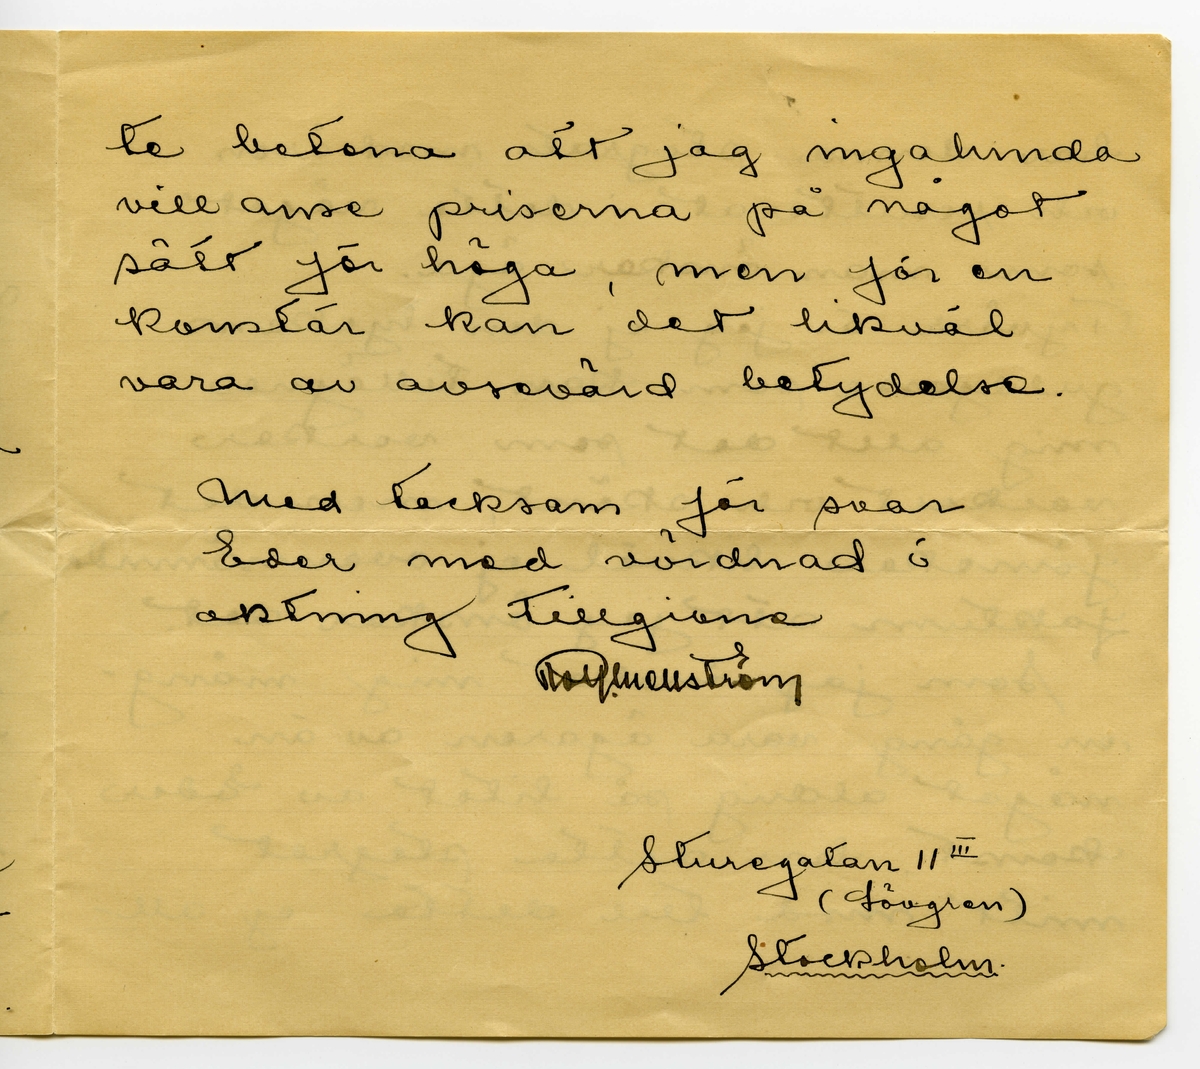 te betona att jag ingalunda
vill anse priserna på något
sätt för höga, men för en
konstär kan det likväl
vara av avsevärd betydelse.
Med tacksam för svar
Eder med vördnad o
aktning tillgivne
Rolf Mellström
Sturegatan 11 III
(Lövgren)
Stockholm.